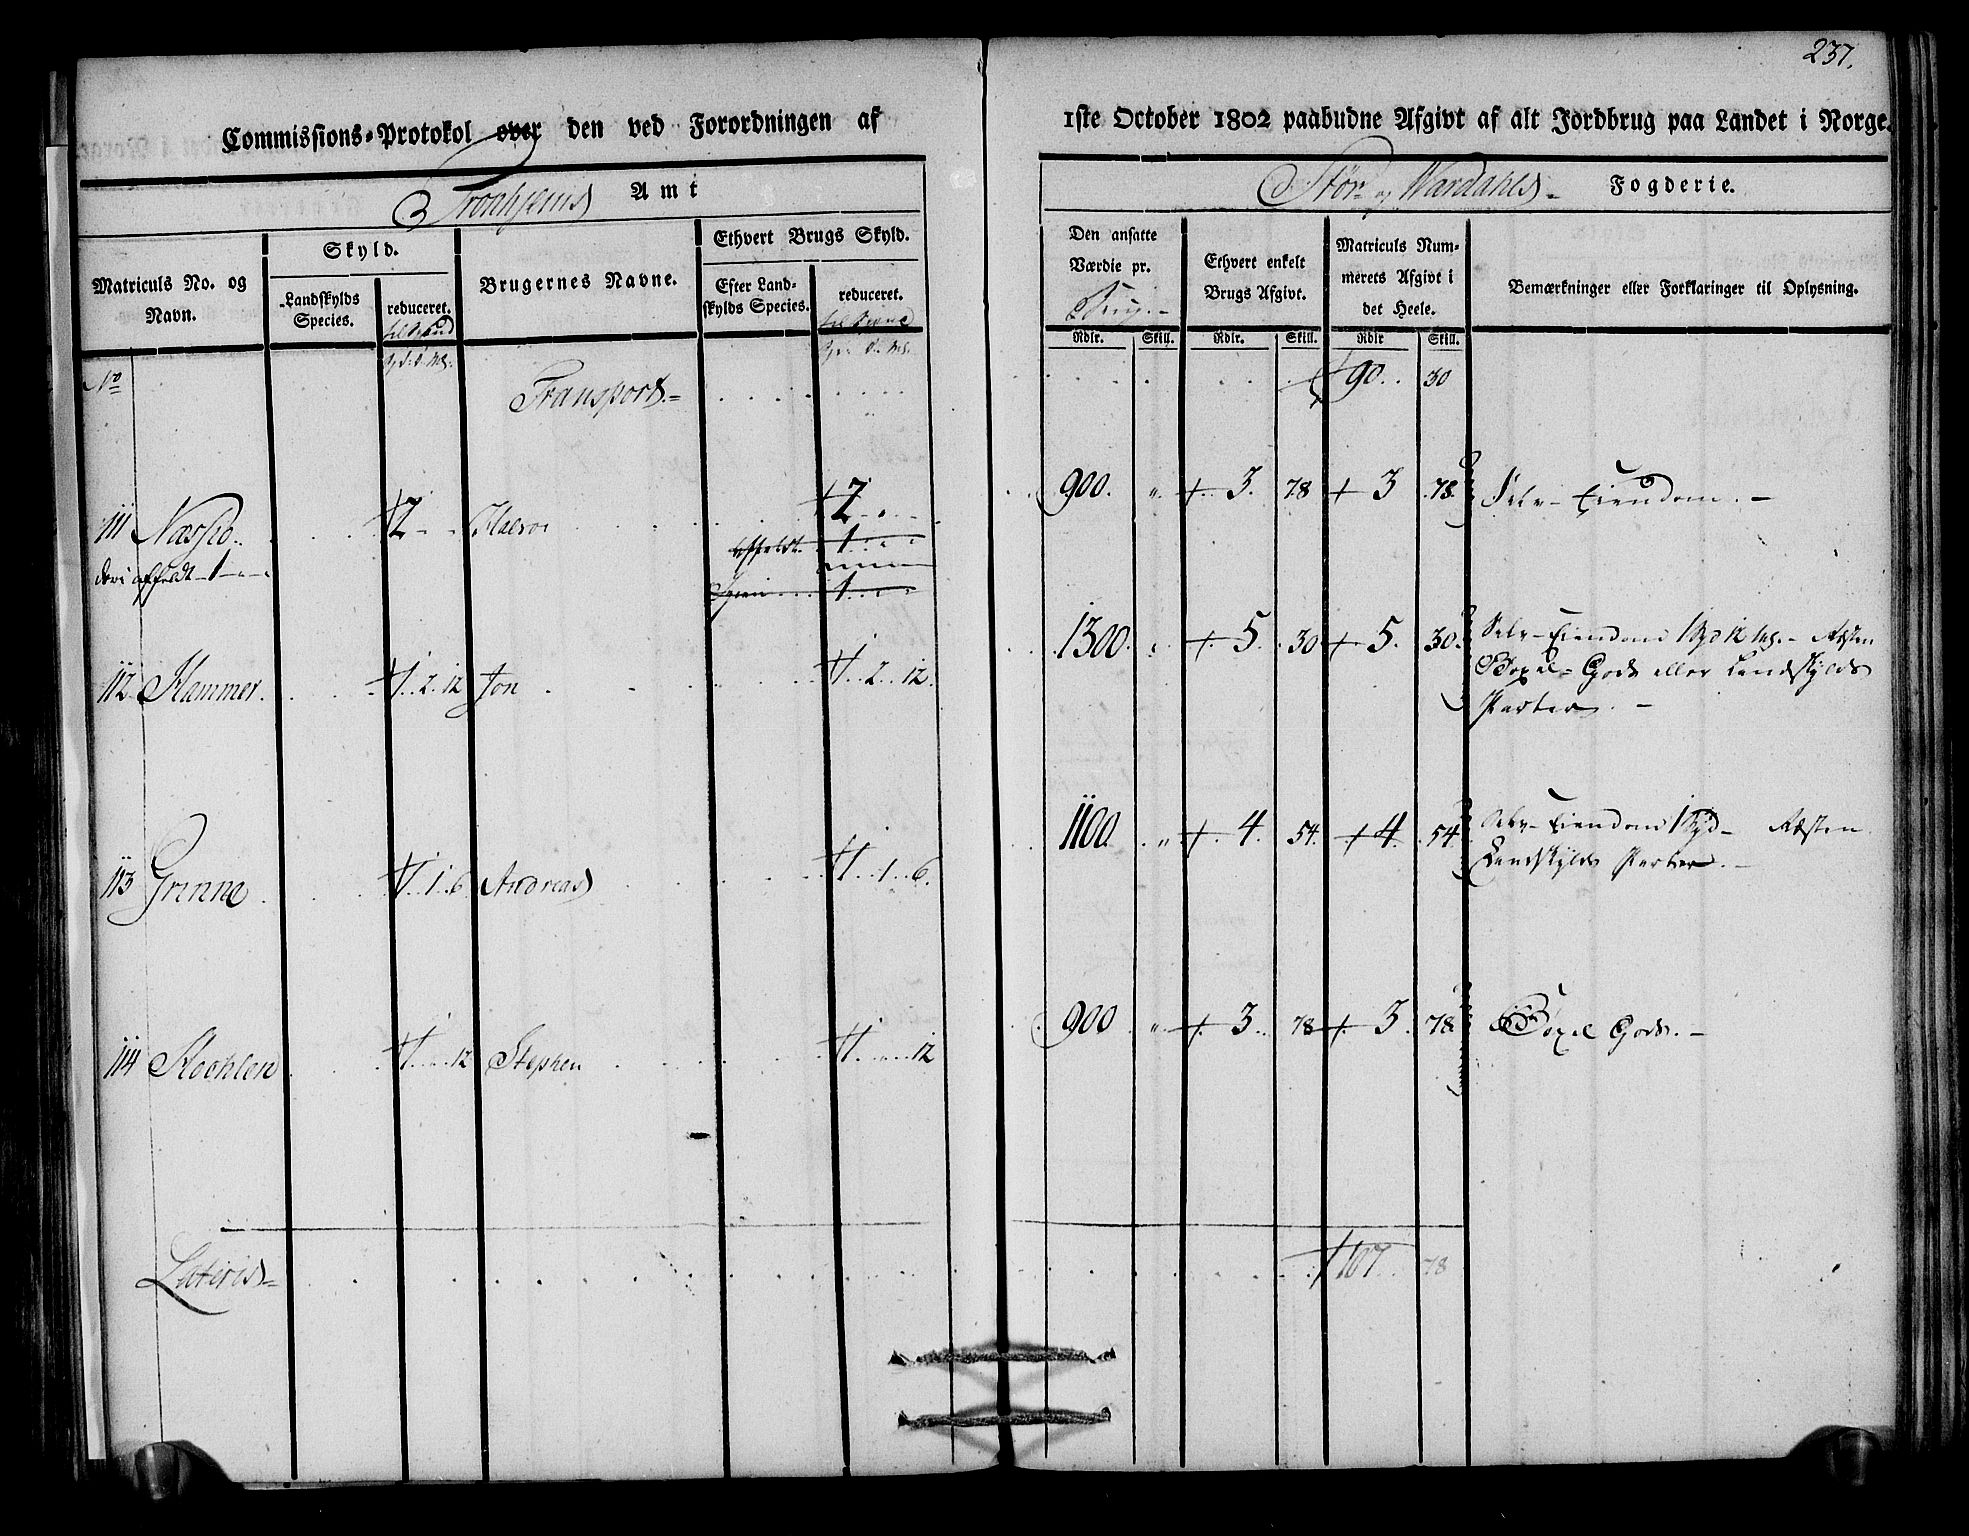 237.
Commissions-Protokol over den ved Forordningen af 1ste October 1802 paabudne Afgivt af alt Jordbrug paa Landet i Norge.
Tronhjems Amt
Stör og Wærdahls Fogderie.
Matriculs No. og Navn.
Skyld.
Landskylds Species.
reduceret.
Brugernes Navne.
Ethvert Brugs Skyld.
Efter Landskylds Species.
reduceret.
Den ansatte Værdie pr. Brug.
Ethvert enkelt Brugs Afgivt.
Matriculs Nummerets Afgivt i det Heele.
Bemærkninger eller Forklaringer til Oplysning.
Rdlr. Skill. Rdlr. Skill. Rdlr Skill.
No Transport 90 30
111 2 Halvor 2 900 " 3 78 3 78 Selv-Eiendom
affældt 1
1
112 Hammer 1 2 12 Jon 1 2 12 1300 " 5 30 5 30 Selv-Eiendom 1 Spd 12 mg. Resten
Böxel-Gods eller Landskylds
Parter
113 Grinne 1 1 6 Andreas 1 1 6 1100 " 4 54 4 54 Selv-Eiendom 1 Spd Resten
Landskylds Parter
114 1 12 Stephen 1 12 900 " 3 78 3 78 Böxel Gods
Lateris 107 78